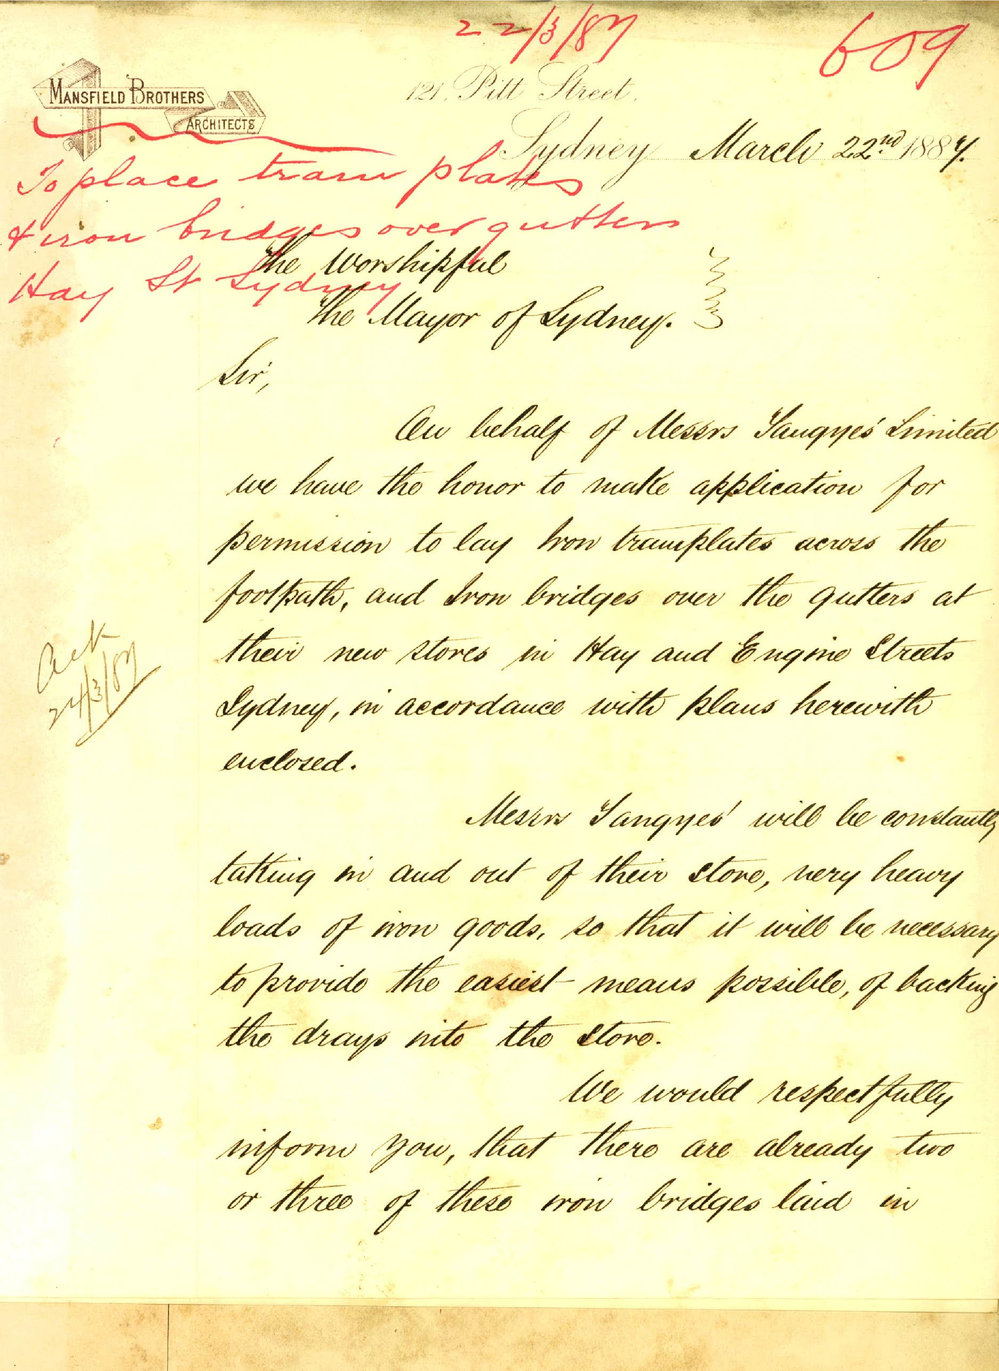 22/3/87
609
MANSFIELD BROTHERS
ARCHITECTS
121. Pitt Street.
Sydney March 22nd 1887.
To place tram plates
& iron bridges over gutters
Hay St Sydney
The Worshipful
The Mayor of Sydney.
Sir,
On behalf of Messrs Tangyes' Limited
we have the honor to make application for
permission to lay Iron tramplates across the
footpath, and Iron bridges over the gutters at
their new stores in Hay and Engine Streets
Sydney, in accordance with plans herewith
enclosed.
Ack
24/3/87
Messrs Tangyes' will be constantly
taking in and out of their store, very heavy
loads of iron goods, so that it will be necessary
to provide the easiest means possible, of backing
the drays into the store.
We would respectfully
inform you, that there are already two
or three of these iron bridges laid in